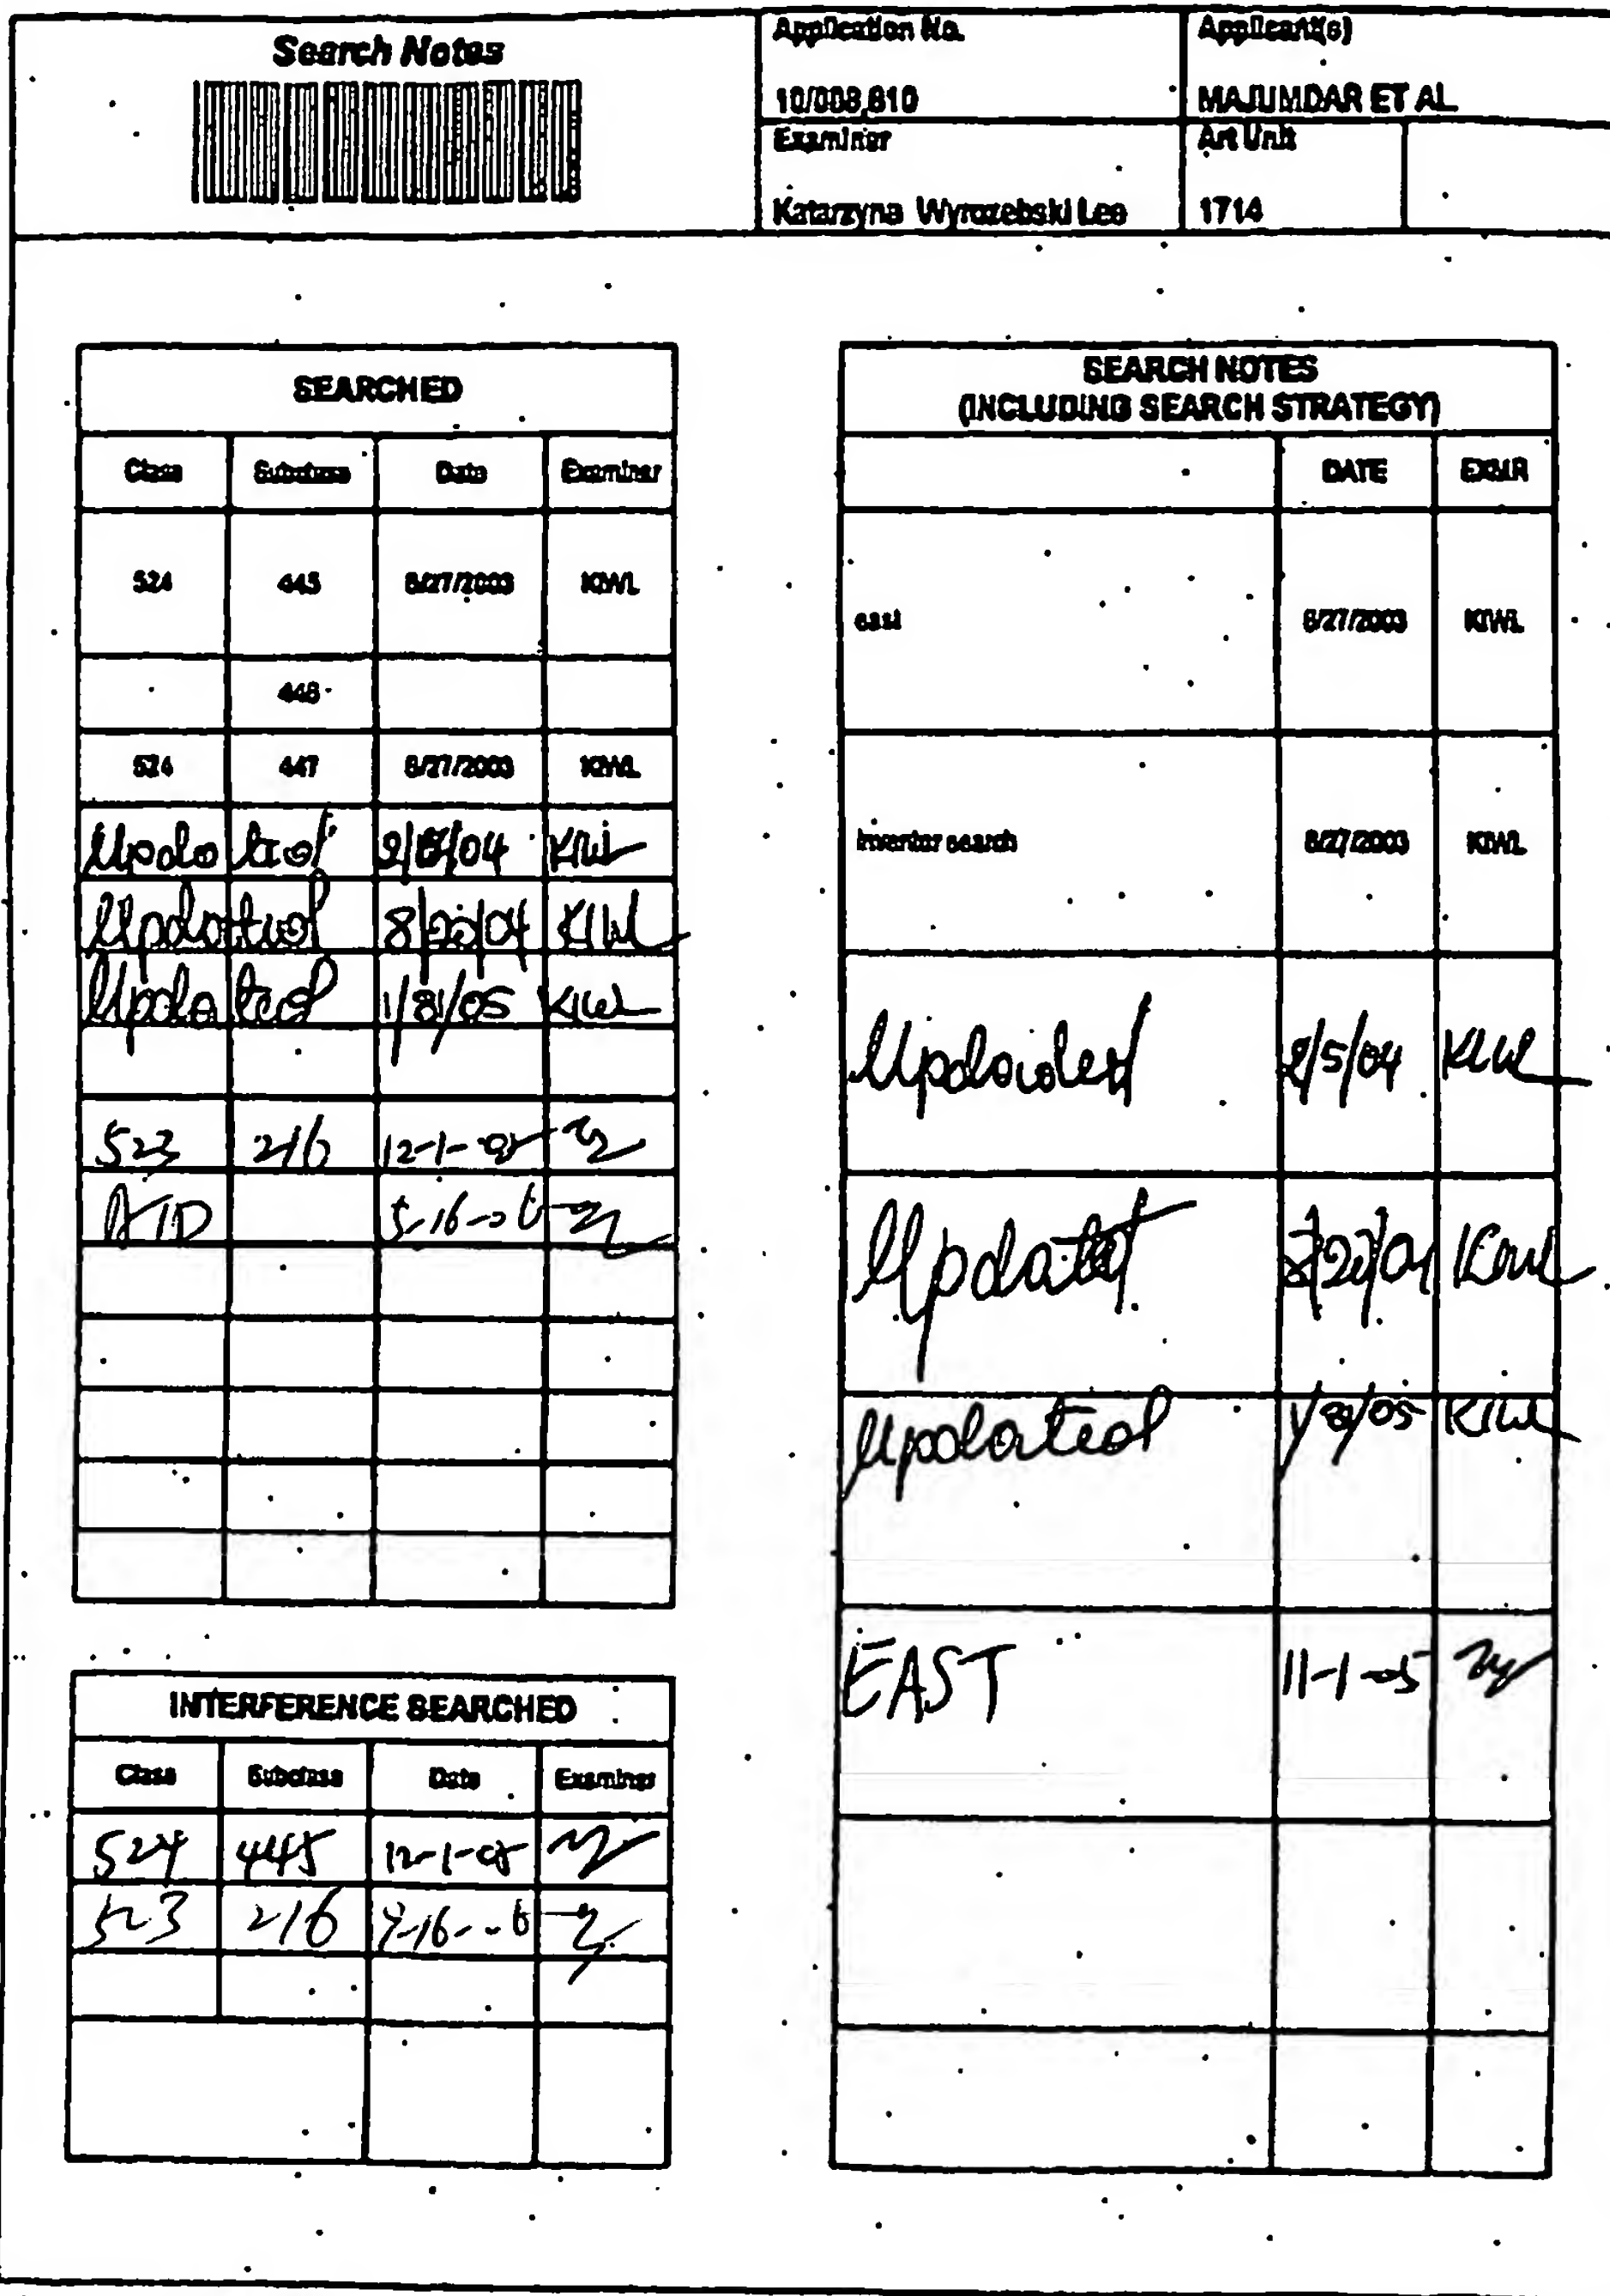 Search Notes
Application No.
Applicant(s)
MAJUMDAR ET AL
Examiner
Art Unit
Katarzyna Wyrozebski Lee
1714
SEARCHED
Class Subclass Date Examiner
524 445 8/27/2003 KIWL
448
524 447 8/27/2003 KIWL
Updated 04 KIWL
Updated 8/20/04 KIWL
Updated 1/31/05 KIWL
523 216 12-1-05
5-16-06
INTERFERENCE SEARCHED
Class Subclass Date Examiner
524 445 12-1-05
523 216
SEARCH NOTES
(INCLUDING SEARCH STRATEGY)
DATE EXMR
east 8/27/2003 KIWL
inventor search 8/27/2003 KIWL
Updated 2/5/04 KIWL
Updated 8/20/04 KIWL
Updated 1/31/05 KIWL
EAST 11-1-05